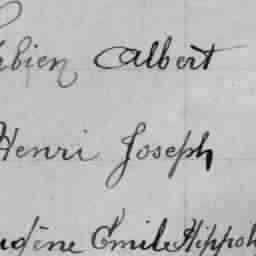 ebien Albert
Henri Joseph
ugène Emile Hippol